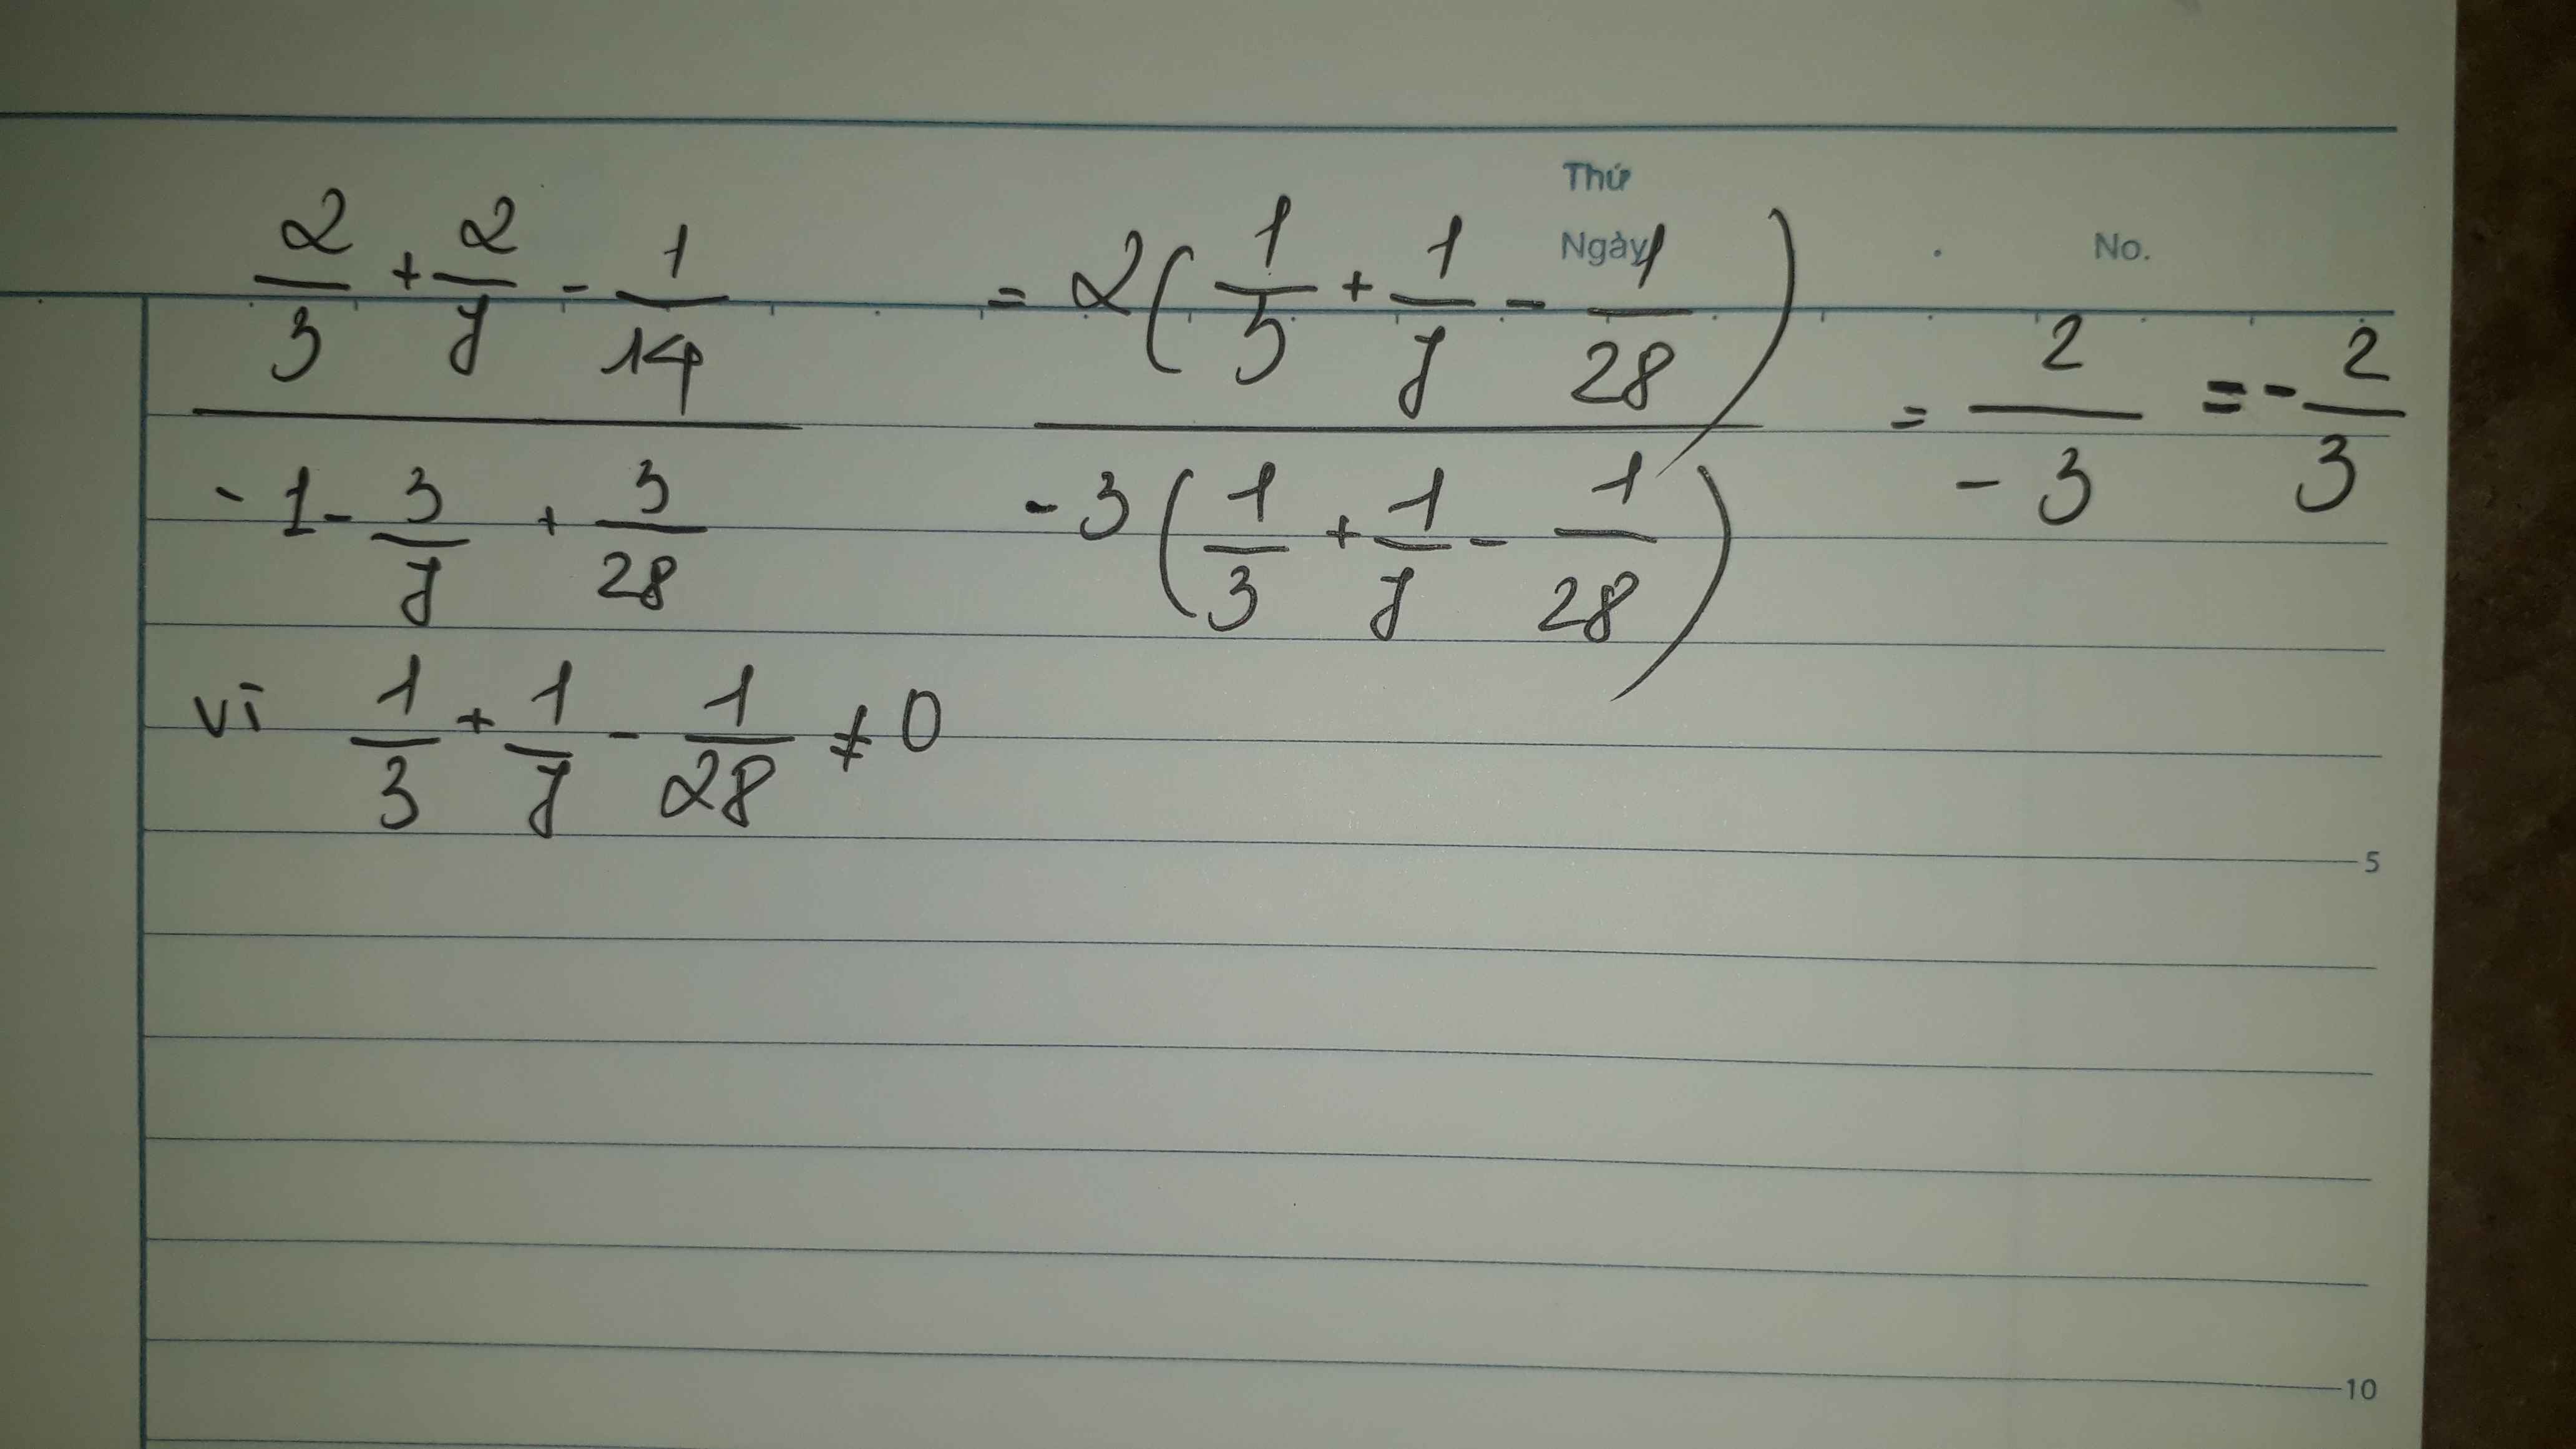 Thứ
Ngày No.
2/3 + 2/7 - 1/14 = 2(1/3 + 1/7 - 1/28) = 2 = - 2/3
-1 - 3/7 + 3/28 -3(1/3 + 1/7 - 1/28) -3
vì 1/3 + 1/7 - 1/28 ≠ 0
5
10